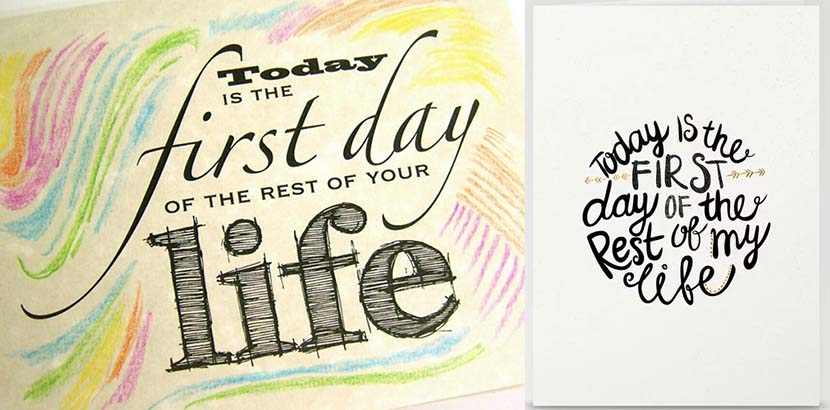 Today
IS THE
first day
OF THE REST OF YOUR
life
Today IS the
FIRST
day OF the
Rest of my
life